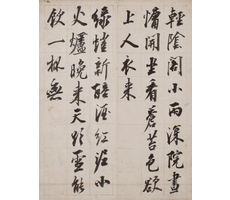 輕陰閣小雨深院晝
慵開坐看蒼苔色欲
上人衣來
綠螘新醅酒紅泥小
火爐晚來天欲雪能
飲一杯無